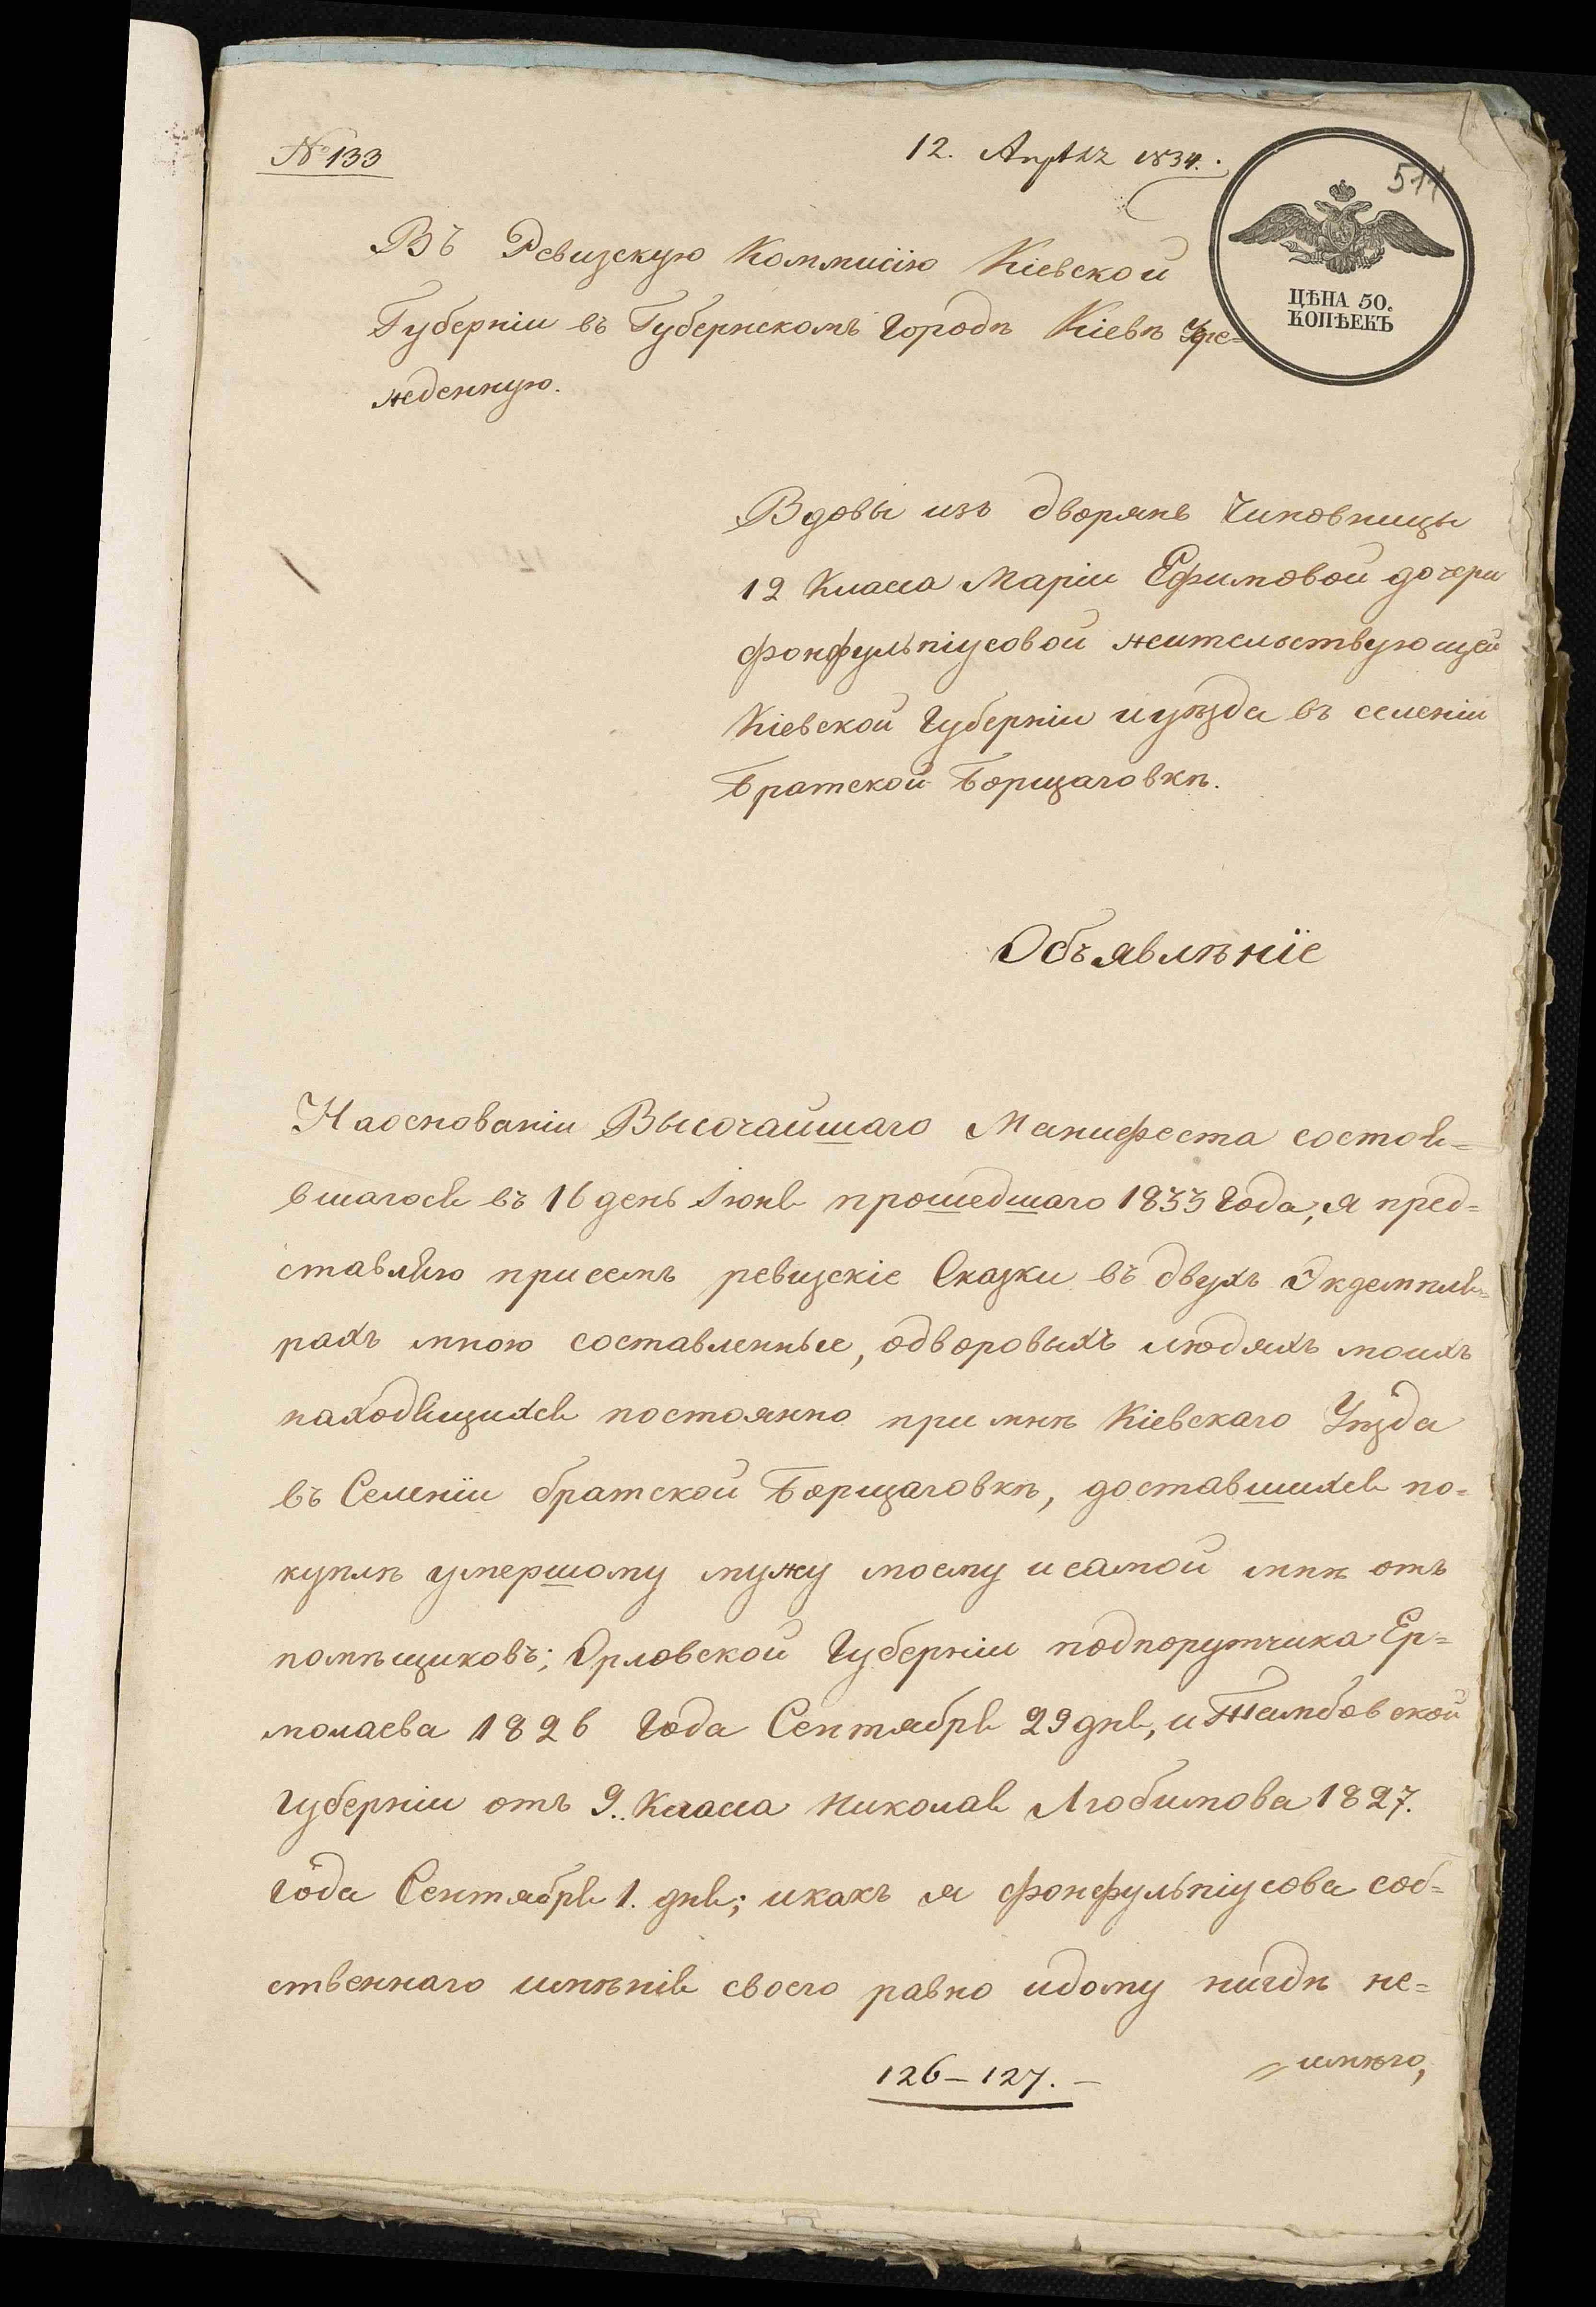 № 133
12. Апрѣля 1834.
511
ЦѢНА 50.
КОПѢЕКЪ
Въ Ревизскую Коммисію Кіевской
Губерніи въ Губернскомъ Городѣ Кіевѣ Учре=
жденную.
Вдовы изъ дворянъ Чиновницы
12 Класса Маріи Ефимовой дочери
фонфульпіусовой жительствующей
Кіевской Губерніи и уѣзда въ селеніи
Братской Борщаговкѣ.
Объявлѣніе
Наоснованіи Высочайшаго Манифеста состоя=
вшагося въ 16 день Іюня прошедшаго 1833 Года, я пред=
ставляю присемъ ревизскіе Сказки въ двухъ Экземпля=
рахъ мною составленные, одворовыхъ людяхъ моихъ
находящихся постоянно при мнѣ Кіевскаго Уѣзда
въ Селеніи братской Борщаговкѣ, доставшихся по=
куплѣ умершому мужу моему исамой мнѣ отъ
помѣщиковъ; Орловской Губерніи подпорутчика Ер=
молаева 1826 Года Сентября 29 дня, и Тамбовской
Губерніи отъ 9. Класса Николая Любимова 1827.
Года Сентября 1. дня; икакъ я фонфульпіусова соб=
ственнаго имѣнія своего равно идому нигдѣ не=
126–127. –
= имѣю,